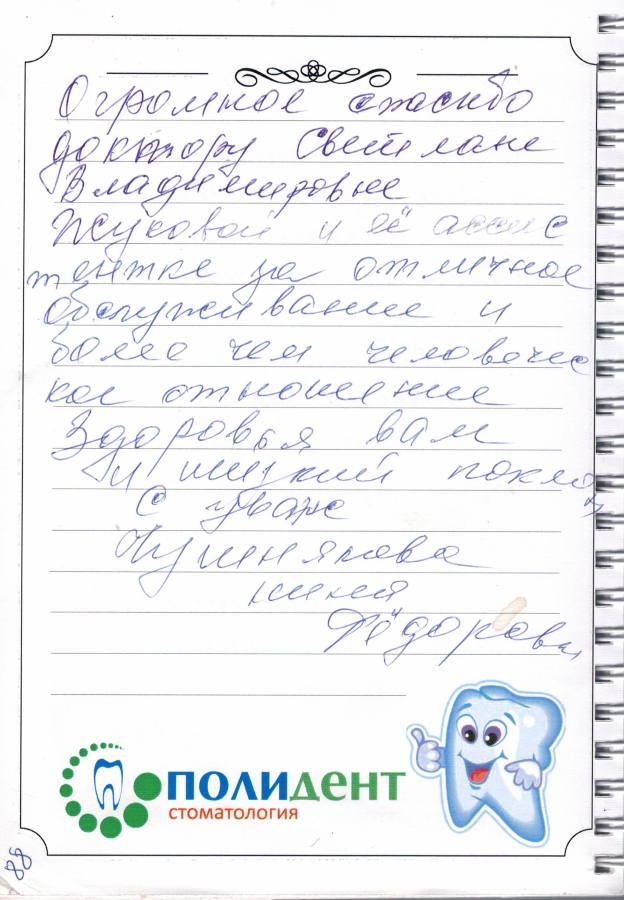 Огромное спасибо
доктору Светлане
Владимировне
Жуковой и её ассис
тентке за отличное
обслуживание и
более чем человечес
кое отношение
Здоровья вам
и низкий поклон
С уваж
Нина
Фёдоровна
ПОЛИДЕНТ
СТОМАТОЛОГИЯ
88